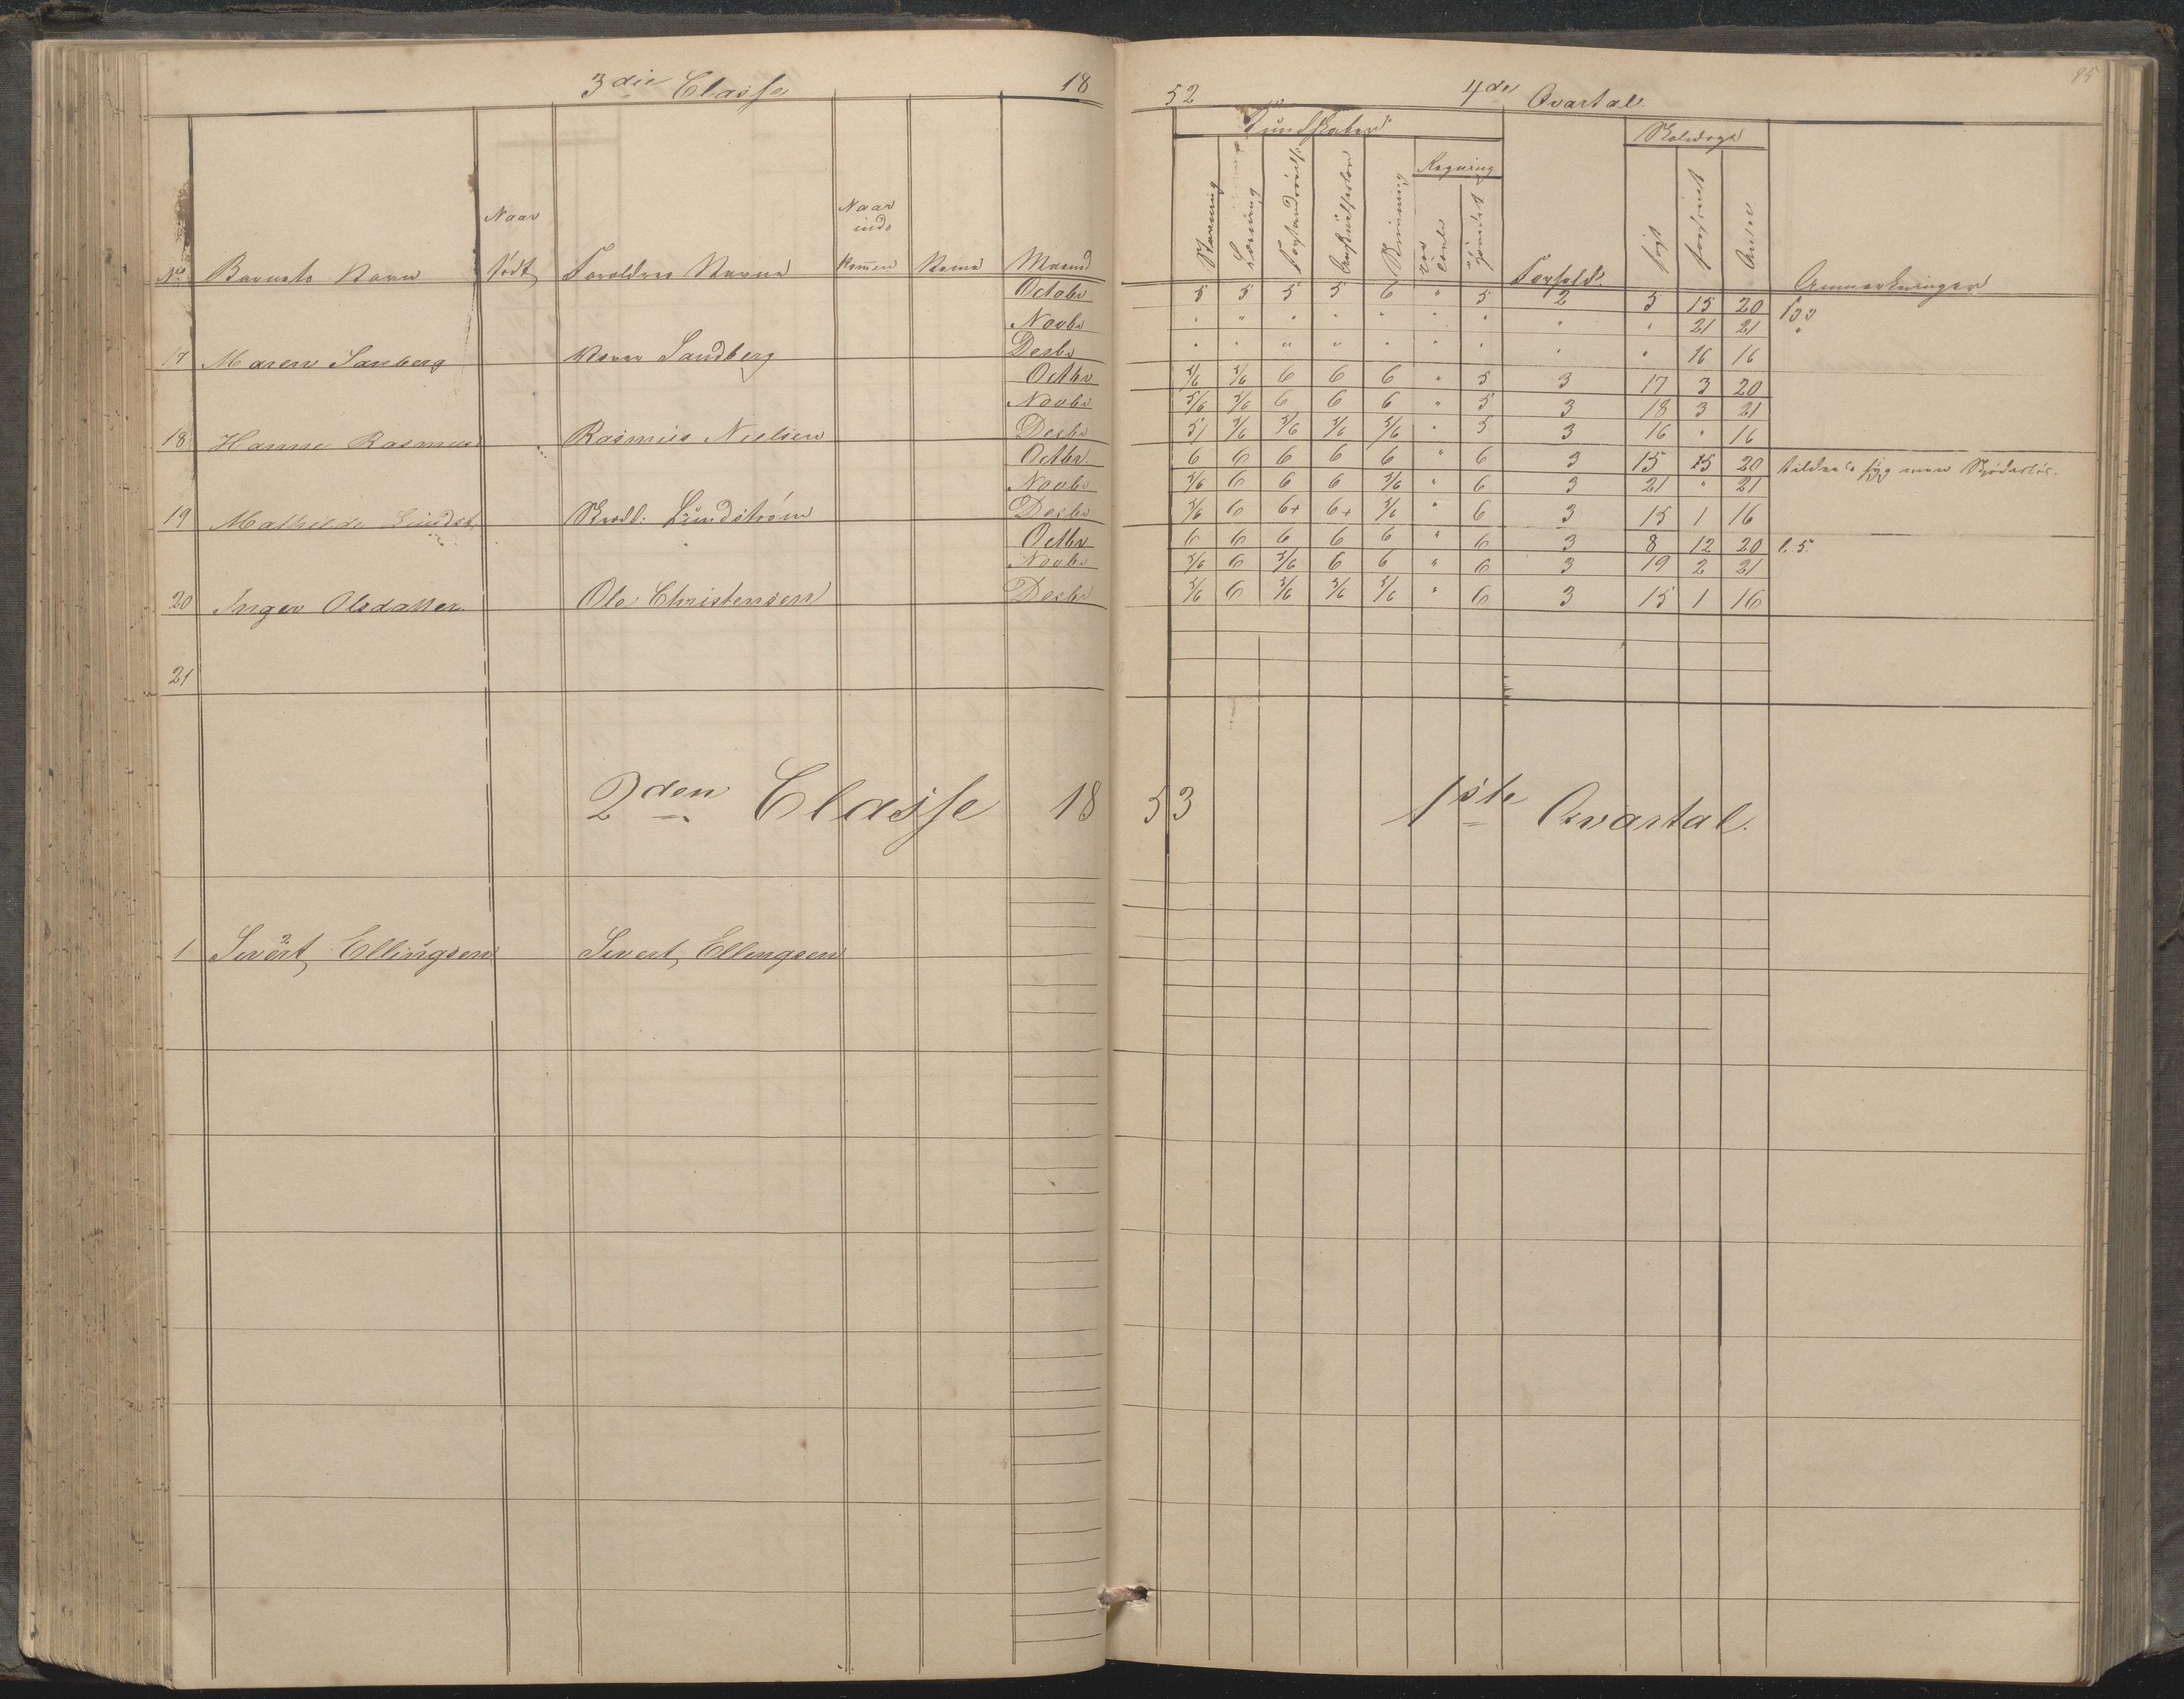 3die Classe 18 52 4de Qvartal 95
Kundskaber Skoledage
Regning
No Barnets Navn Naar født Forældres Navne Naar ind- kommen Maaned Stavning Læsning Religion Skrivning Forhold søgt forsømt Antal Anmærkninger
Octobr 5 5 5 5 6 " 5 2 5 15 20 syg
Novbr " " " " " " " " " 21 21 "
17 Maren Sanberg Sandberg Desbr " " " " " " " " " 16 16
Octbr 5/6 5/6 6 6 6 " 5 3 17 3 20
Novbr 5/6 5/6 6 6 6 " 5 3 18 3 21
18 Hanne Rasmus Rasmus Nielsen Desbr 5/ 5/6 5/6 5/6 5/6 " 5 3 16 " 16
Octbr. 6 6 6 6 6 " 6 3 15 15 20 syg men
Novbr 5/6 6 6 6 5/6 " 6 3 21 " 21
19 Mathilde Lundst. Lundstrøm Desbr 5/6 6 6+ 6+ 5/6 " 6 3 15 1 16
Octbr 6 6 6 6 6 " 6 3 8 12 20 l. 5.
Novbr 5/6 6 5/6 6 6 " 6 3 19 2 21
20 Inger Olsdatter Ole Christensen Desbr 5/6 6 5/6 5/6 5/6 " 6 3 15 1 16
21
2den Classe 18 53 1ste Qvartal.
1 Sivert, Ellingsen Sivert, Ellingsen